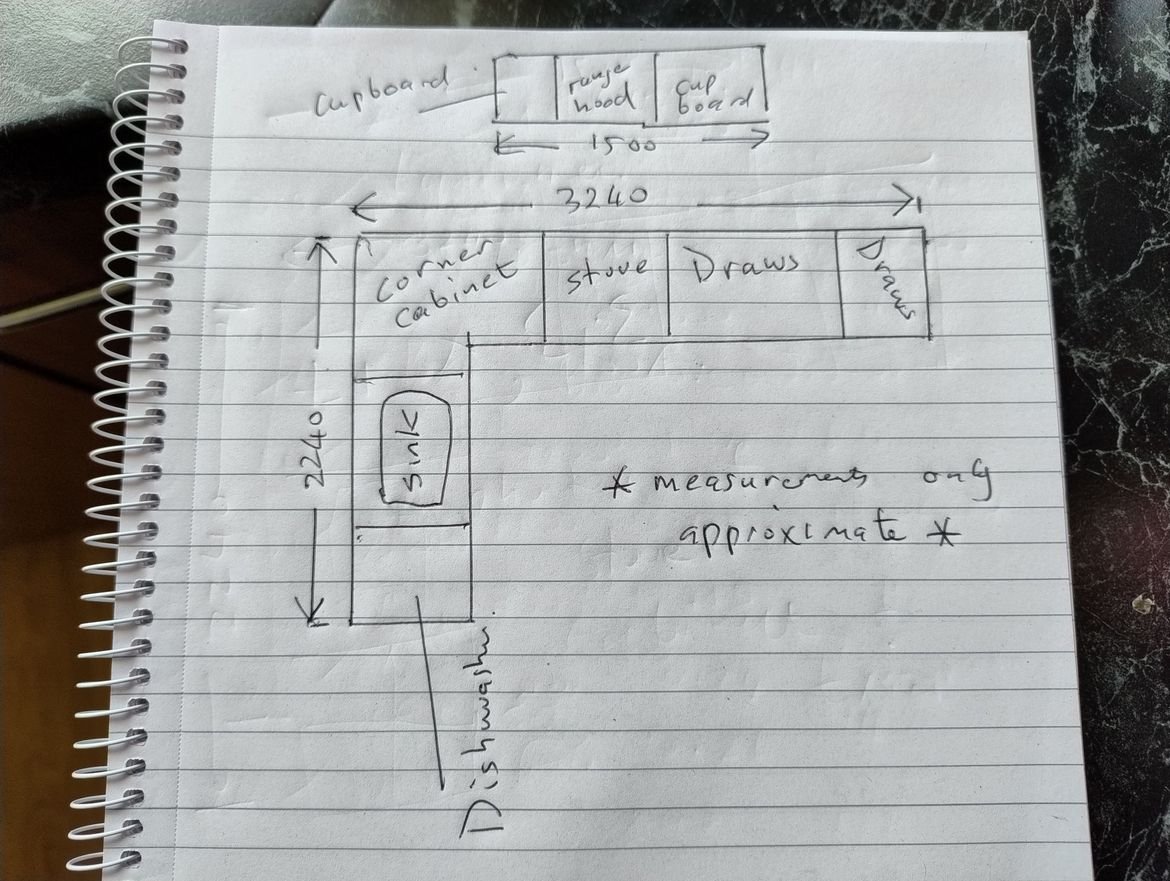 Cupboard
range
hood
cup
board
1500
3240
corner
cabinet
stove
Draws
Draws
2240
Sink
* measurements only
approximate *
Dishwasher